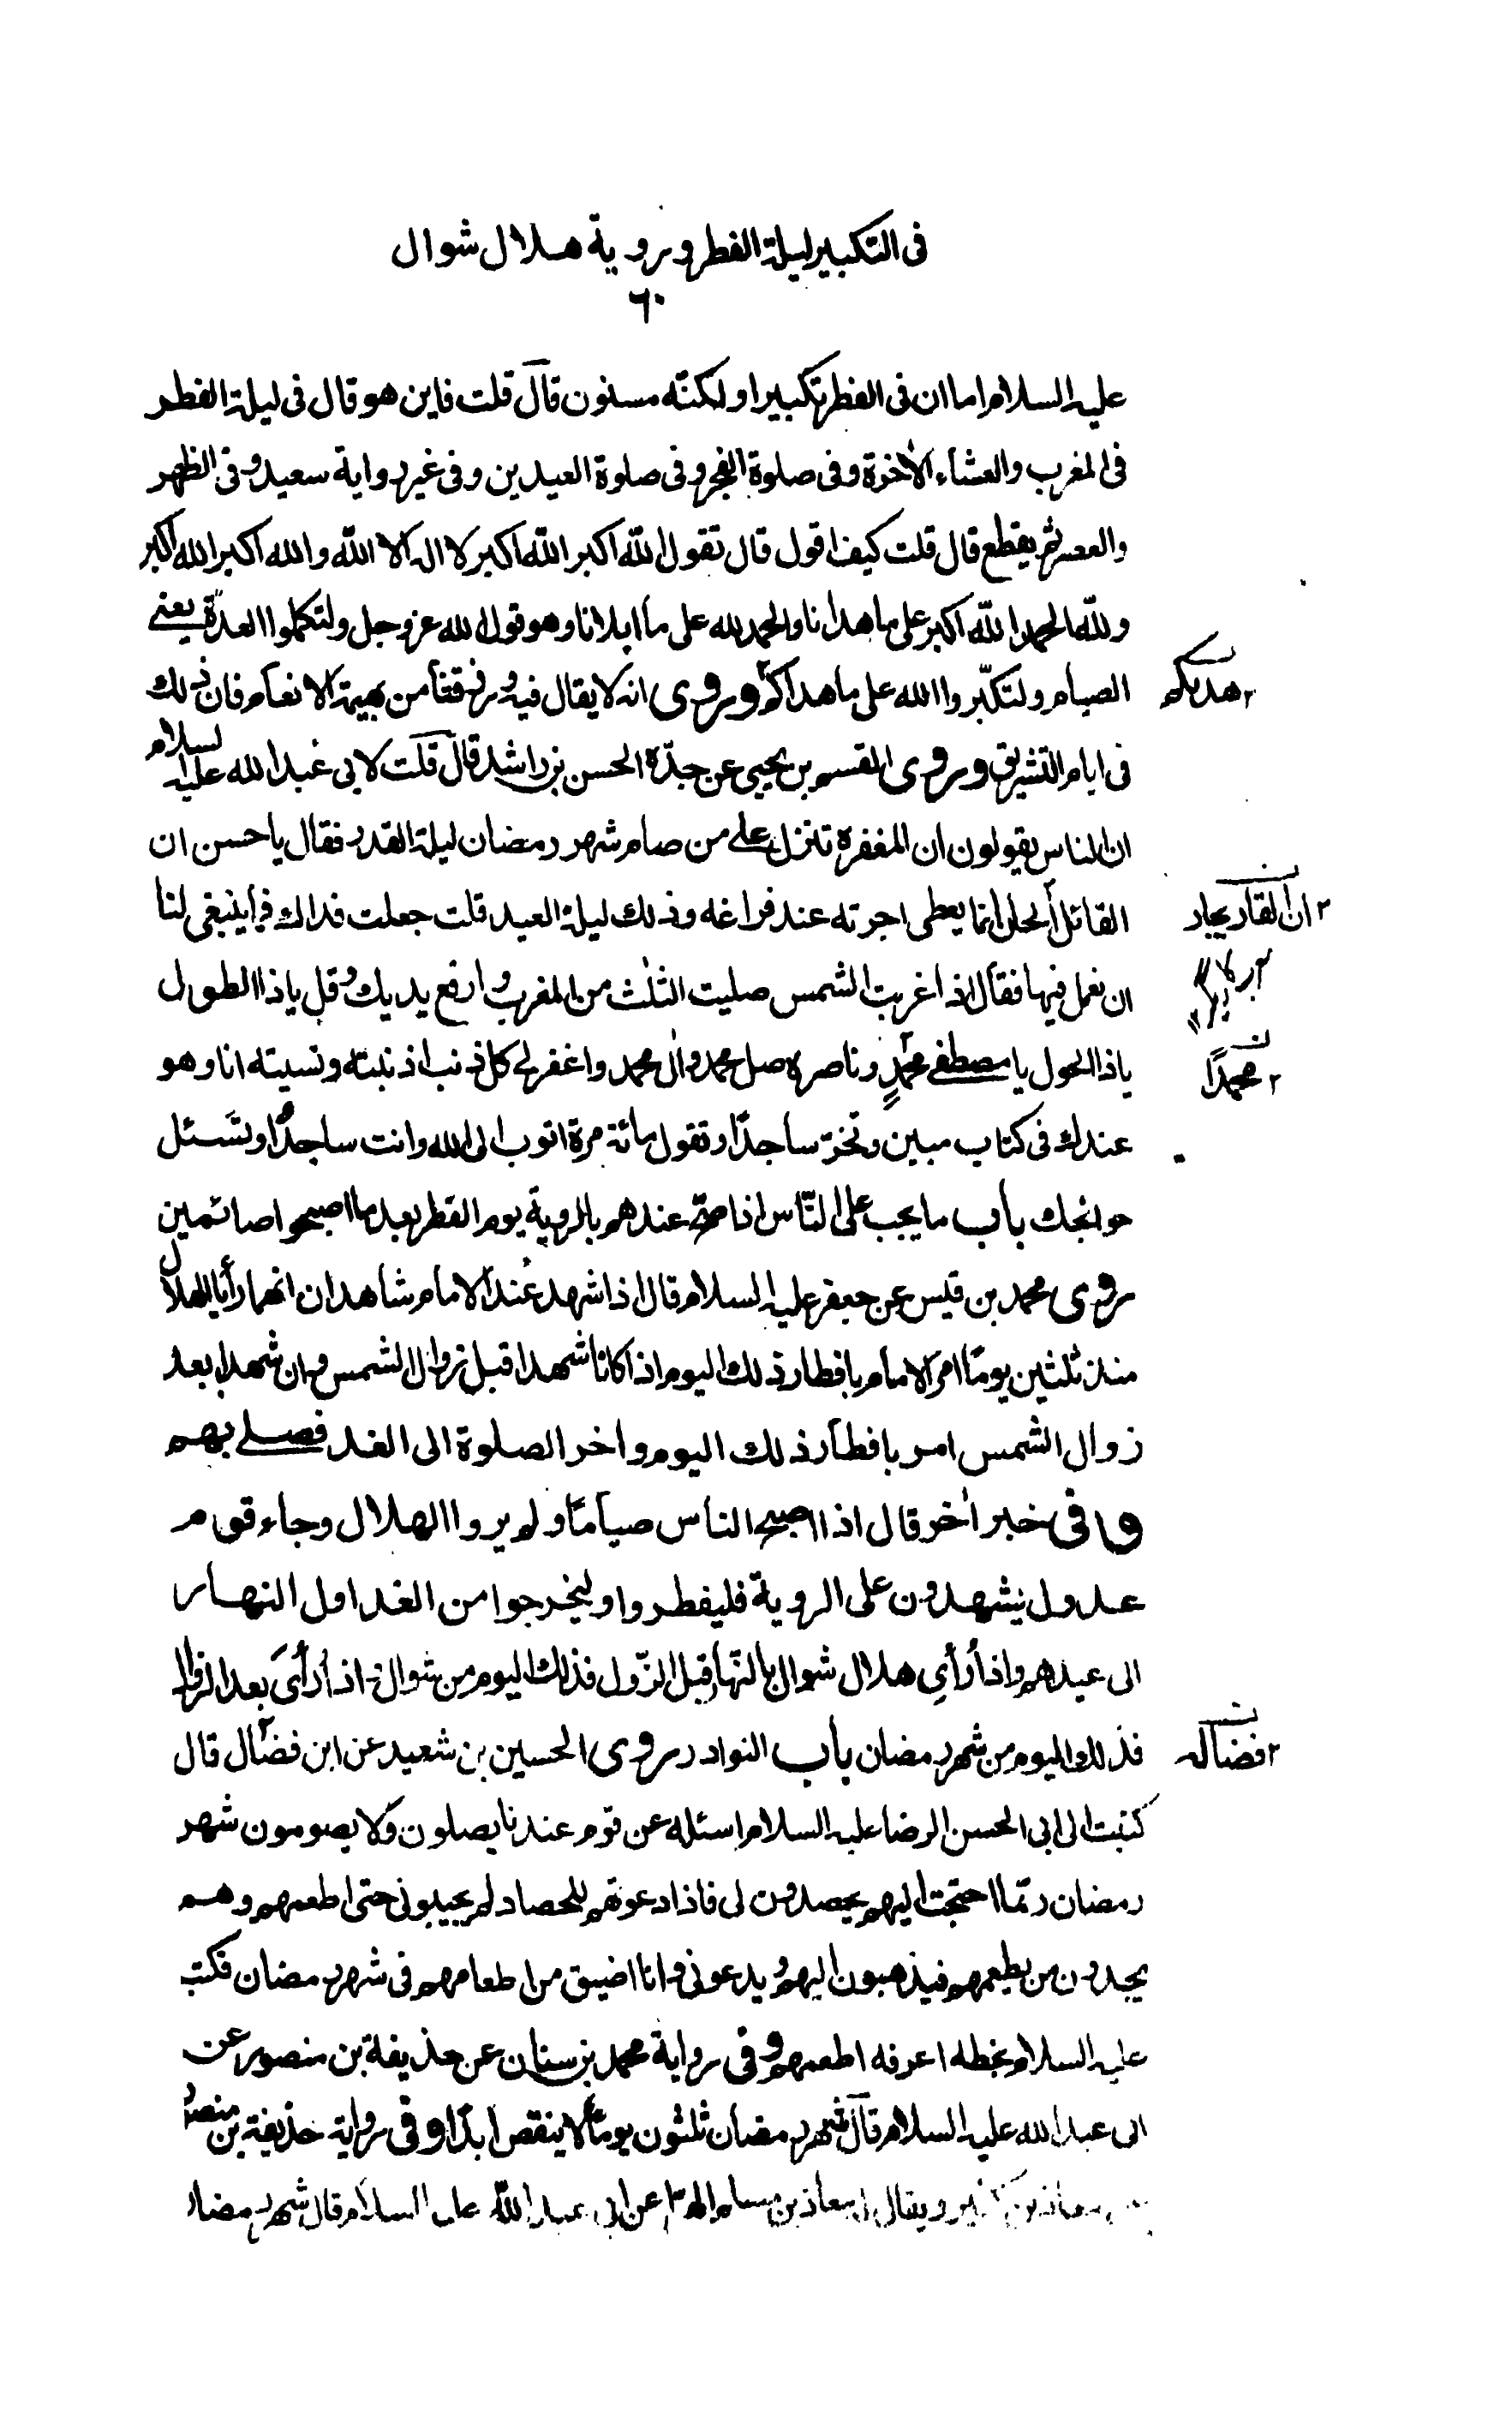 فى التكبير ليلة الفطر و روية هلال شوال
٦٠
عليه السلام اما ان فى الفطر تكبيرا ولكنّه مسنون قال قلت فاين هو قال فى ليلة الفطر
فى المغرب والعشاء الاخرة وفى صلوة الفجر وفى صلوة العيدين وفى غير رواية سعيد وفى الظهر
والعصر ثم يقطع قال قلت كيف اقول قال تقول اللّه اكبر اللّه اكبر لا اله الا اللّه والله اكبر الله اكبر
وللّه الحمد اللّه اكبر على ما هدانا والحمد لله على ما ابلانا وهو قول الله عز وجل ولتكملوا العدّة يعنى
الصيام ولتكبّروا الله على ما هداكم وروى انه لا يقال فيه ورزقنا من بهيمة الانعام فان ذلك
هديكم
فى ايام التشريق وروى القسم بن يحيى عن جدّه الحسن بن راشد قال قلت لابى عبد الله عليه السلام
ان الناس يقولون ان المغفرة تنزل على من صام شهر رمضان ليلة القدر فقال يا حسن ان
القائل لحان انما يعطى اجرته عند فراغه وذلك ليلة العيد قلت جعلت فداك فما ينبغى لنا
ان نعمل فيها فقال اذا غربت الشمس صليت الثلث من المغرب وارفع يديك وقل يا ذا الطول
يا ذا الحول يا مصطفى محمّدٍ وناصره صل محمد وال محمد واغفر لى كل ذنب اذنبته ونسيته انا وهو
محمداً
عندك فى كتاب مبين وتخرّ ساجدًا وتقول مائة مرة اتوب الى الله وانت ساجدًا وتسئل
حوائجك باب ما يجب على النّاس اذا صحّ عندهم بالروية يوم الفطر بعد ما اصبحوا صائمين
روى محمد بن قيس عن جعفر عليه السلام قال اذا شهد عند الامام شاهدان انهما رأيا الهلال
منذ ثلثين يومًا امر الامام بافطار ذلك اليوم اذا كانا شهدا قبل زوال الشمس وان شهدا بعد
زوال الشمس امر بافطار ذلك اليوم واخر الصلوة الى الغد فصلى بهم
وفى خبر اخر قال اذا اصبح الناس صيامًا ولم يروا الهلال وجاء قوم
عدول يشهدون على الروية فليفطروا وليخرجوا من الغد اول النهار
الى عيدهم واذا رأى هلال شوال بالنّهار قبل الزّول فذلك اليوم من شوال و اذا رأى بعد الزوال
فذلك اليوم من شهر رمضان باب النوادر روى الحسين بن شعيد عن ابن فضّال قال
فضاله
كتبت الى ابى الحسن الرضا عليه السلام اسئله عن قوم عندنا يصلون ولا يصومون شهر
رمضان ربّما احتجت اليهم يحصدون لى فاذا دعوتهم للحصاد لم يجيبونى حتى اطعمهم وهم
يجدون من يطعمهم فيذهبون اليهم ويدعونى وانا اضيق من اطعامهم فى شهر رمضان فكتب
عليه السلام بخطه اعرفه اطعمهم وفى رواية محمد بن سنان عن حذيفة بن منصور عن
ابى عبد الله عليه السلام قال شهر رمضان ثلثون يومًا لا ينقص ابدًا وفى رواية حذيفة بن منصور
معاذ بن كثير ويقال له معاذ بن مسلم عن ابى عبد اللّه عليه السلام قال شهر رمضان